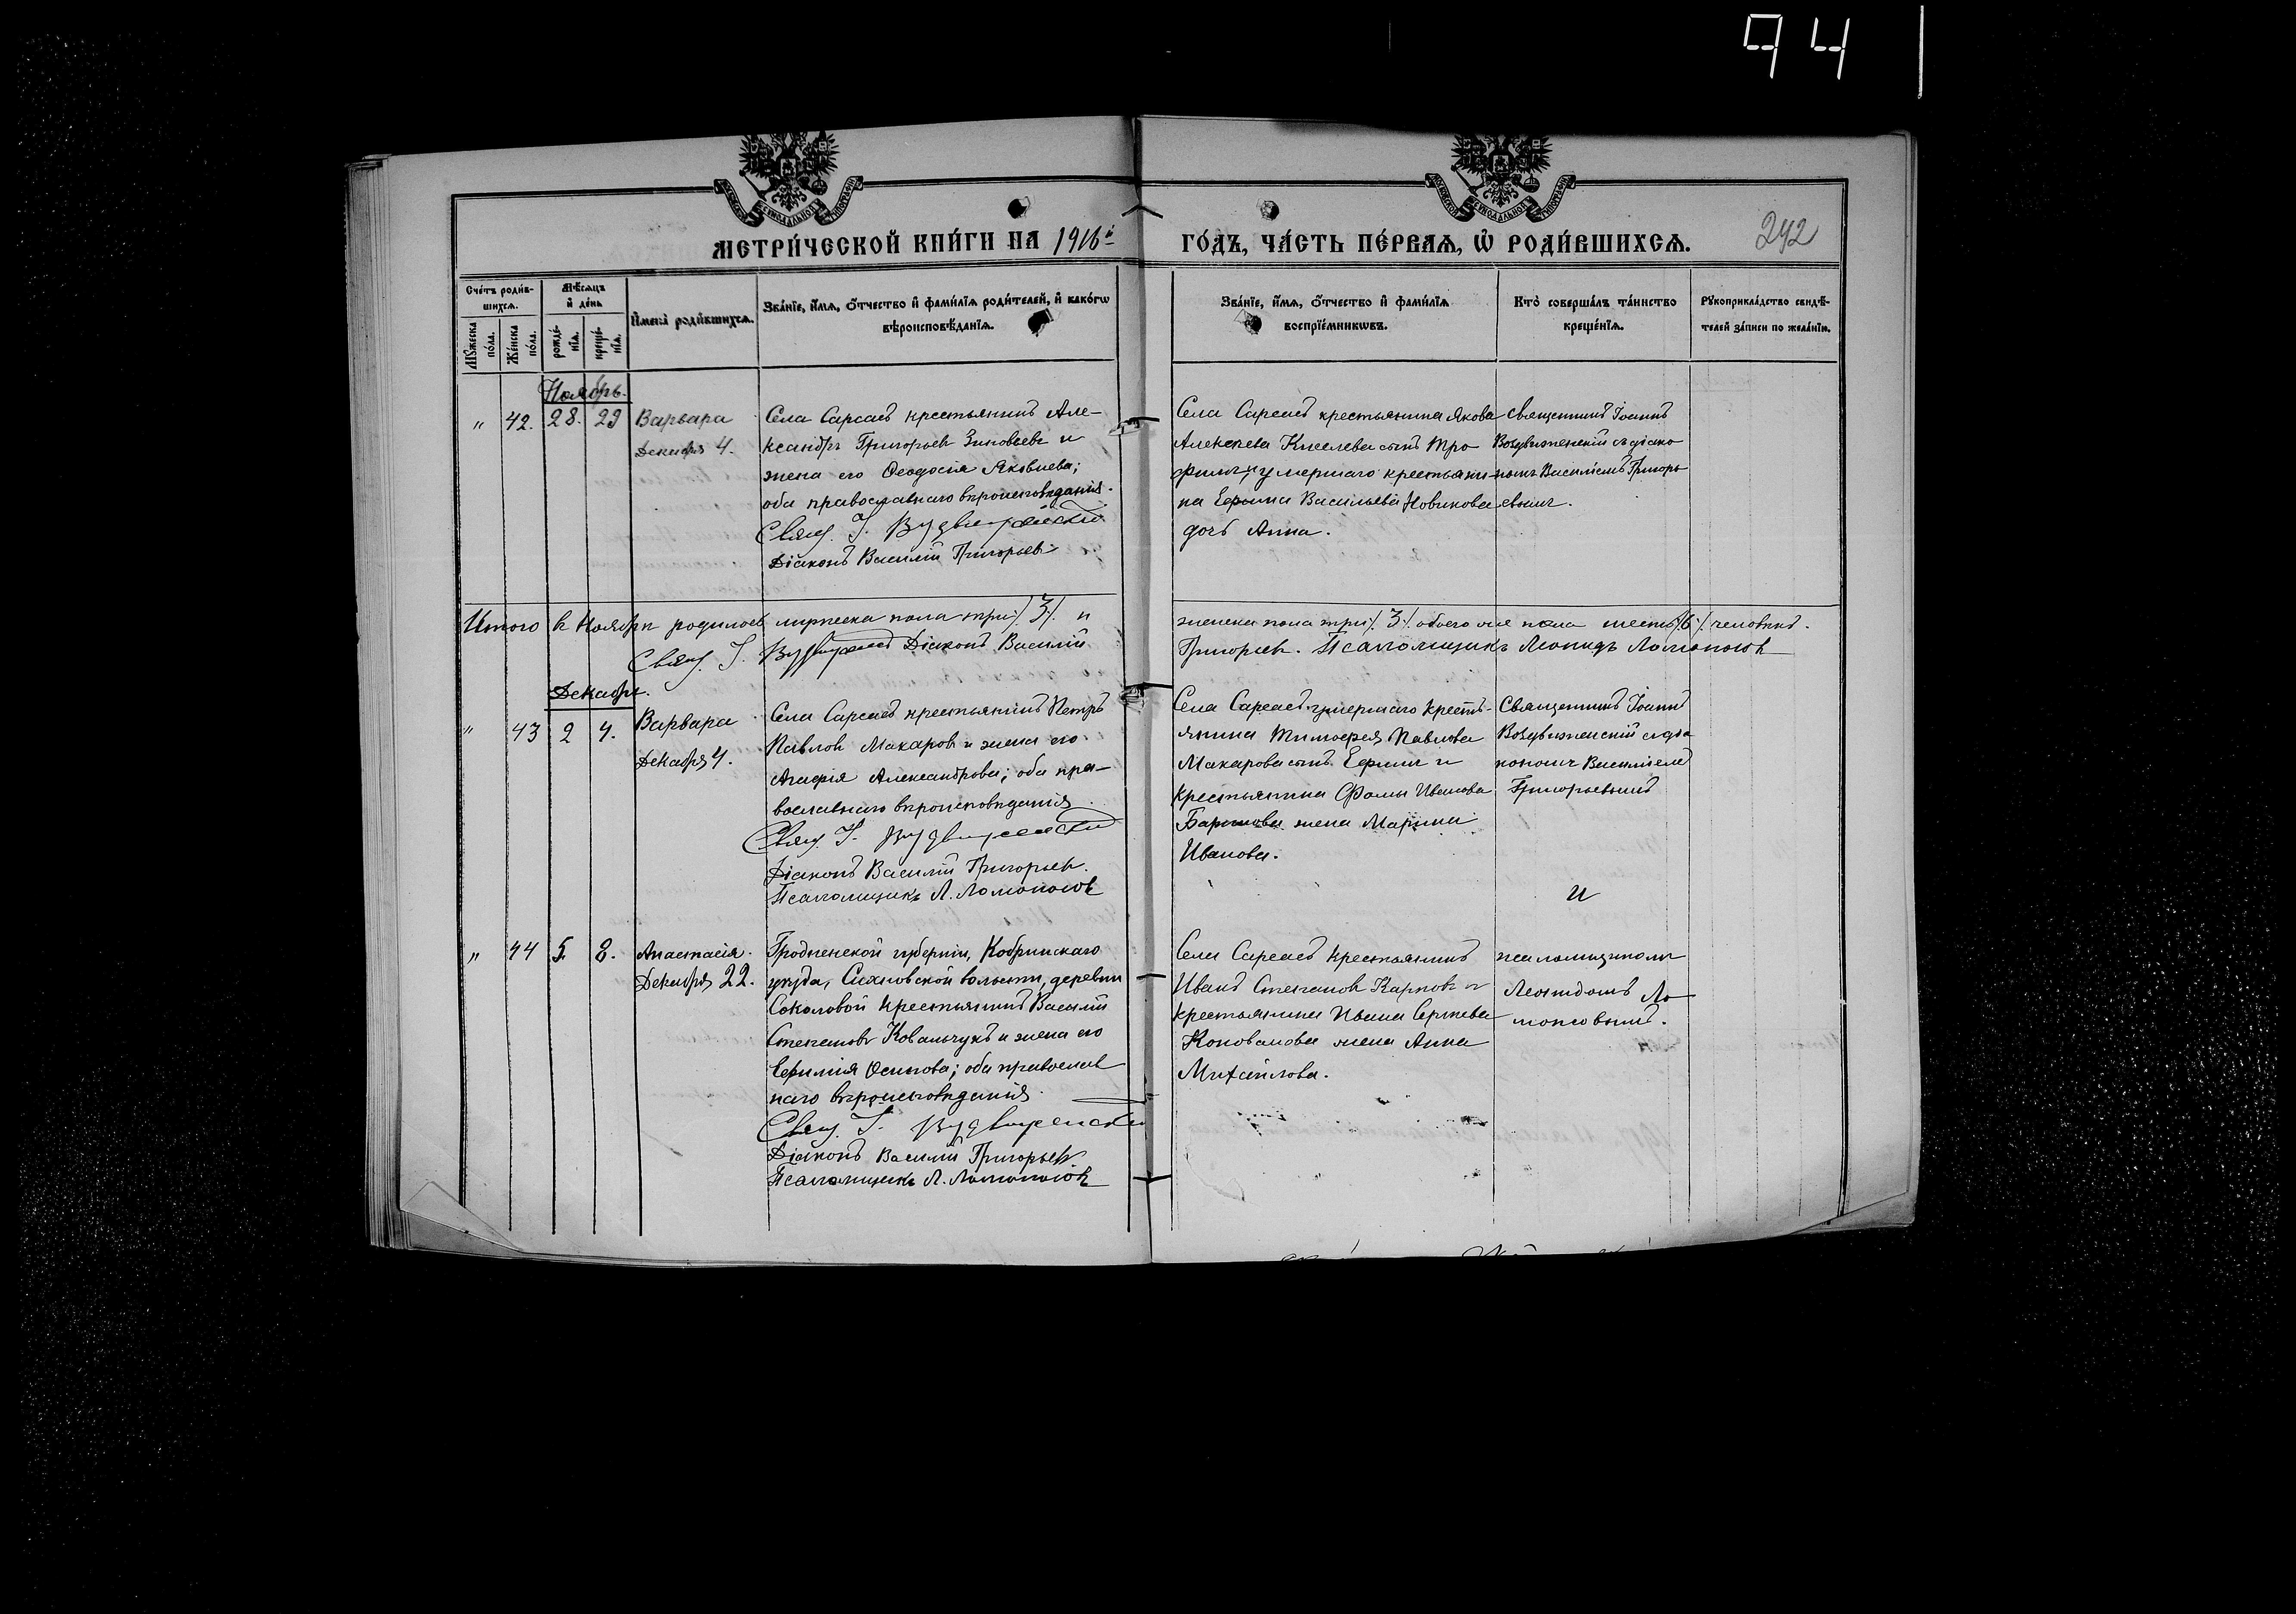 94
МОСКОВСКОЙ СѴНОДАЛЬНОЙ ТИПОГРАФІИ
МОСКОВСКОЙ СѴНОДАЛЬНОЙ ТИПОГРАФІИ
МЕТРИ́ЧЕСКОЙ КНИ́ГИ НА 1916й
ГО́ДЪ, ЧА́СТЬ ПЕ́РВАѦ, Ѡ҆ РОДИ́ВШИХСѦ.
242
Сче́тъ роди́в-
шихсѧ.
Мꙋ́жеска по́ла.
Же́нска по́ла.
Мѣ́сѧцъ
и҆ де́нь
рожде́-
нїѧ.
креще́-
нїѧ.
И҆мена̀ роди́вшихсѧ.
Зва́нїе, и҆́мѧ, ѻ҆́тчество и҆ фами́лїѧ роди́телей, и҆ како́гѡ
вѣроисповѣ́данїѧ.
Зва́нїе, и҆́мѧ, ѻ҆́тчество и҆ фами́лїѧ
воспрїе́мникѡвъ.
Кто̀ соверша́лъ та́инство
креще́нїѧ.
Рꙋкоприкла́дство свидѣ́-
телей за́писи по жела́нїю.
Ноябрь.
" 42. 28. 29 Варвара
Декабря 4.
Села Сарсасъ крестьянинъ Але-
ксандръ Григорьевъ Зиновьевъ и
жена его Ѳеодосія Яковлева;
оба православнаго вѣроисповѣданія.
Свящ. І. Воздвиженскій
Діаконъ Василій Григорьевъ
Села Сарсасъ крестьянина Якова
Алексѣева Киселева сынъ Тро
фимъ и умершаго крестьяни
на Ефима Васильева Новикова
дочь Анна.
Священникъ Іоаннъ
Воздвиженскій съ діако
номъ Василіемъ Григорь
евымъ.
Итого въ Ноябрѣ родилось мужеска пола три ·/. 3 ·/. и
женска пола три ·/. 3 ·/. обоего же пола шесть ·/. 6 ·/. человѣкъ.
Свящ. І. Воздвиженскій Діаконъ Василій
Григорьевъ. Псаломщикъ Леонидъ Ломоносовъ
Декабрь.
" 43 2 4. Варвара
Декабря 4.
Села Сарсасъ крестьянинъ Петръ
Павловъ Макаровъ и жена его
Агафія Александрова; оба пра-
вославнаго вѣроисповѣданія
Свящ. І. Воздвиженскій
Діаконъ Василій Григорьевъ.
Псаломщикъ Л. Ломоносовъ
Села Сарсасъ умершаго кресть-
янина Тимофея Павлова
Макарова сынъ Ефимъ и
крестьянина Ѳомы Иванова
жена Марина
Иванова.
Священникъ Іоаннъ
Воздвиженскій съ діа
кономъ Василіемъ
Григорьевымъ
и
" 44 5. 8. Анастасія.
Декабря 22.
Гродненской губерніи, Кобринскаго
уѣзда, волости, деревни
Соколовой крестьянинъ Василій
Степановъ Ковальчукъ и жена его
Евфимія Осипова; оба православ
наго вѣроисповѣданія
Свящ. І. Воздвиженскій
Діаконъ Василій Григорьевъ
Псаломщикъ Л. Ломоносовъ
Села Сарсасъ крестьянинъ
Иванъ Степановъ Карповъ и
крестьянина Ивана Сергѣева
Коновалова жена Анна
Михайлова.
псаломщикомъ
Леонидомъ Ло
моносовымъ.